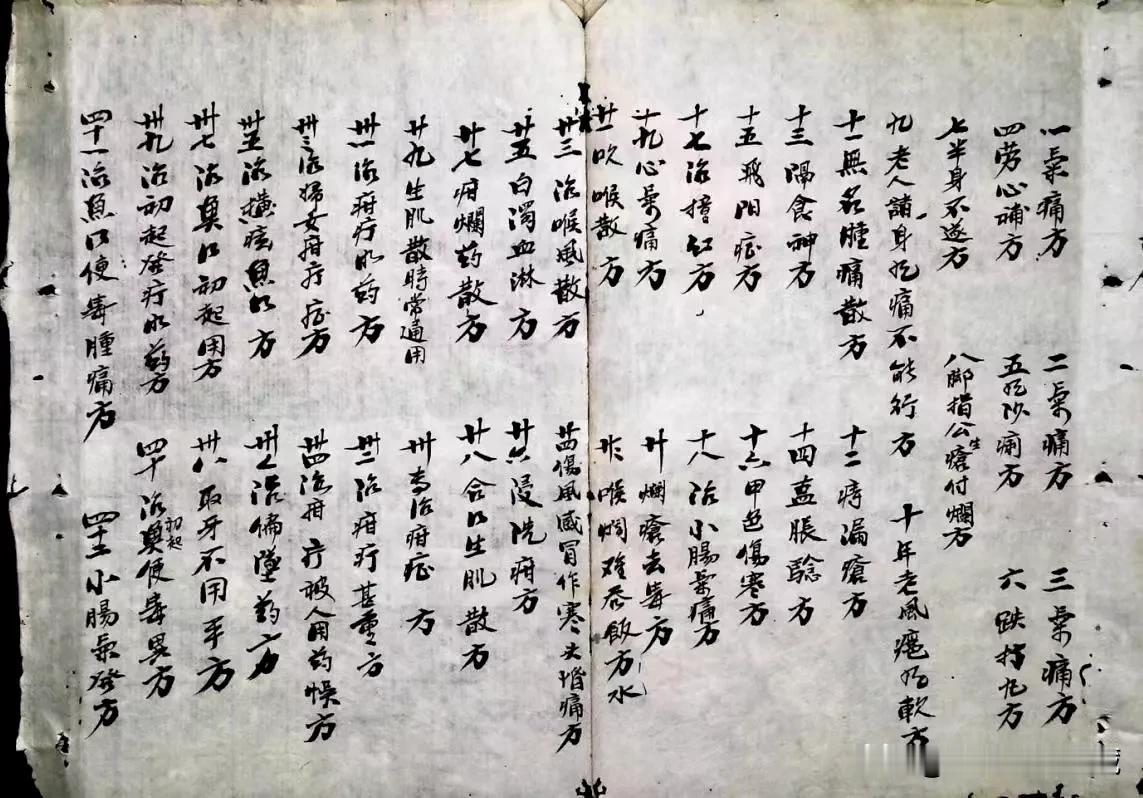 一氣痛方 二氣痛方 三氣痛方
四劳心補方 五肚沙痢方 六跌打丸方
七半身不遂方 八脚指公生瘡付爛方
九老人諸身兎痛不能行方 十年老風癱兎軟方
十一無名腫痛散方 十二痔漏瘡方
十三隔食神方 十四蛊脹騐方
十五飛阳症方 十六甲色傷寒方
十七治撞红方 十八治小腸氣痛方
十九心氣痛方 廿爛瘡去毒方
廿一吹喉散方 廿二喉爛难吞飯方水
廿三治喉風散方 廿四傷風感冒作寒头痛方
廿五白濁血淋方 廿六浸洗疳方
廿七疳爛药散方 廿八合口生肌散方
廿九生肌散時常通用 卅治疳症方
卅一治疳疔水药方 卅二治疳疔甚重方
卅三治婦女疳疔症方 卅四治疳疔被人用药悞方
卅五治横痃魚口方 卅六治偏墜药方
卅七治魚口初起用方 卅八取牙不用手方
卅九治初起發疔水药方 四十治魚初起便毒異方
四十一治魚口便毒腫痛方 四十二小腸氣發方